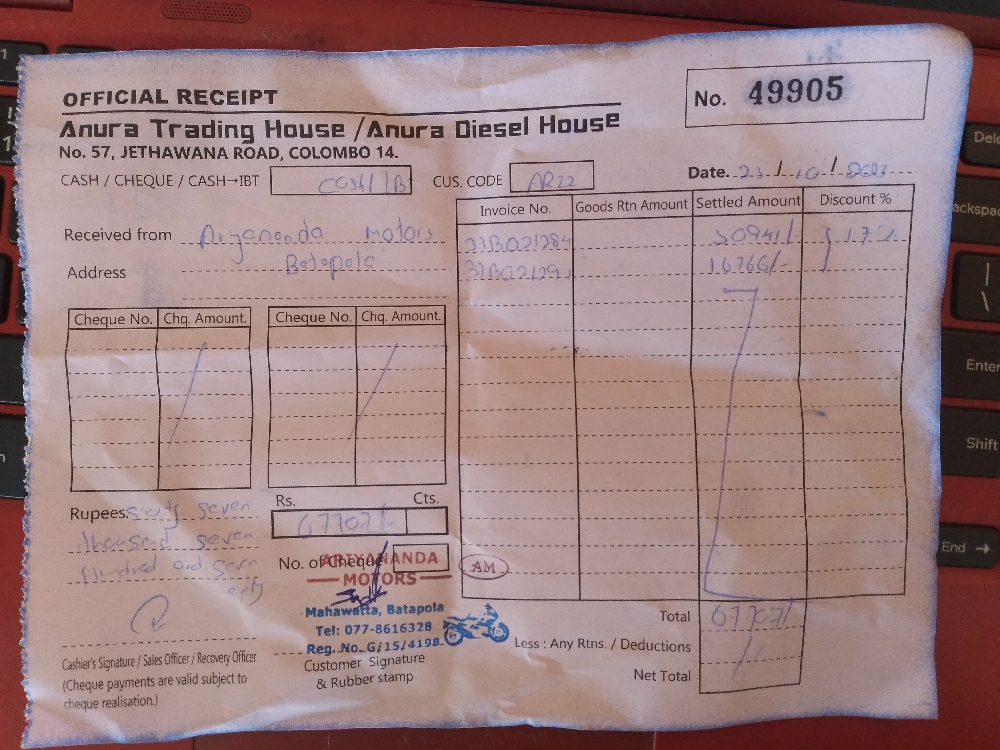 OFFICIAL RECEIPT
No. 49905
Anura Trading House / Anura Diesel House
No. 57, JETHAWANA ROAD, COLOMBO 14.
CASH / CHEQUE / CASH→IBT CUS. CODE AR22 Date. 23 / 10 / 2023
Received from Ariyananda Motors
Address Batapola
Invoice No. Goods Rtn Amount Settled Amount Discount %
50941/- 17%
16766/-
Cheque No. Chq. Amount. Cheque No. Chq. Amount.
Rupees. sixty seven
thousand seven
hundred and seven
only
Rs. Cts.
67707/-
No. of Cheque
ARIYANANDA
MOTORS
AM
Mahawatta, Batapola
Tel: 077-8616328
Reg. No. G/15/4198
Customer Signature
& Rubber stamp
Cashier's Signature / Sales Officer / Recovery Officer
(Cheque payments are valid subject to
cheque realisation.)
Total 67707/-
Less : Any Rtns. / Deductions
Net Total